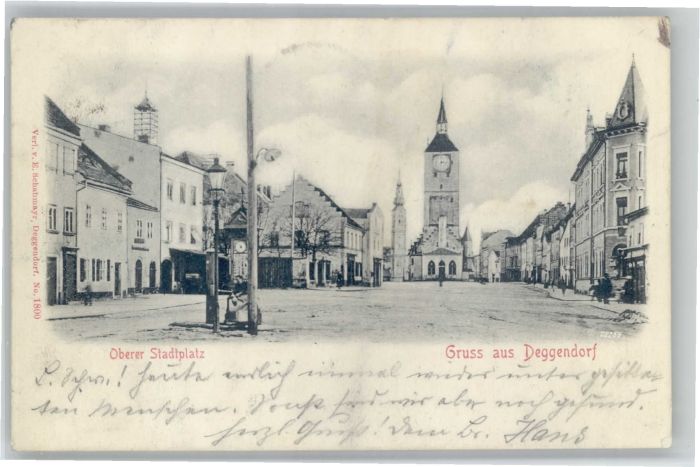 Verl. v. E. Schatzmayr, Deggendorf. No. 1800
Oberer Stadtplatz
Gruss aus Deggendorf
L. Schw.! Heute endlich einmal wieder unter gesitte
ten Menschen. Sonst sind wir aber noch gesund.
Herzl. Gruß! Dem Br. Hans